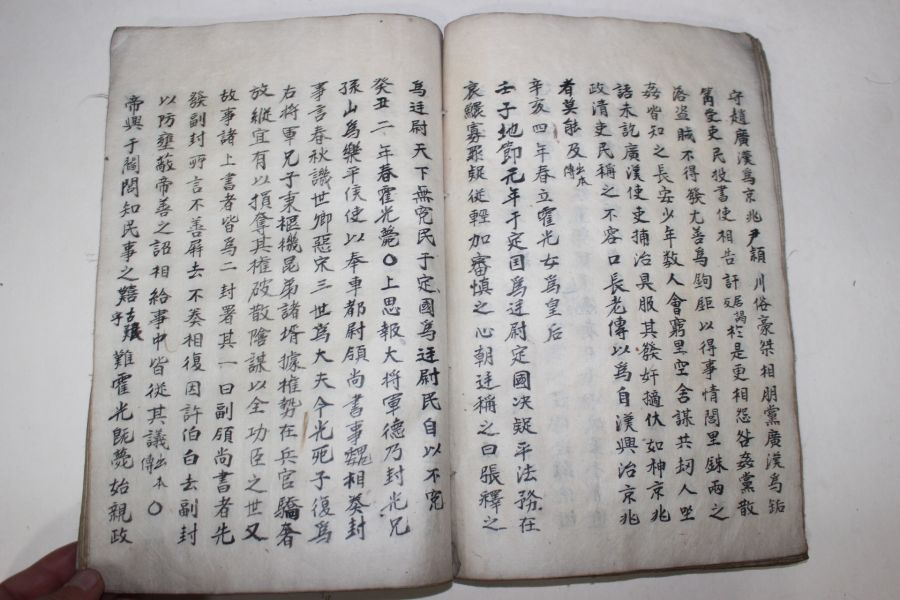 守趙廣漢爲京兆尹穎川俗豪桀相朋黨廣漢爲缿
筩受吏民投書使相告訐居謁反於是更相怨咎姦黨散
落盜賊不得發尤善爲鉤距以得事情閭里銖兩之
姦皆知之長安少年數人會窮里空舍謀共刼人坐
語未訖廣漢使吏捕治具服其發奸擿伏如神京兆
政清吏民稱之不容口長老傳以爲自漢興治京兆
者莫能及出本傳
辛亥四年春立霍光女爲皇后
壬子地節元年于定国爲廷尉定國决疑平法務在
哀鰥寡罪疑従輕加審慎之心朝廷稱之曰張釋之
爲廷尉天下無寃民于定國爲廷尉民自以不寃
癸丑二年春霍光薨〇上思報大将軍德乃封光兄
孫山爲樂平侯使以奉車都尉領尚書事魏相奏封
事言春秋譏世卿惡宋三世爲大夫今光死子復爲
右将軍兄子秉樞機昆弟諸壻據權勢在兵官驕奢
放縱宜有以損奪其權破散陰謀以全功臣之世又
故事諸上書者皆爲二封署其一曰副領尚書者先
發副封所言不善屏去不奏相復因許伯白去副封
以防壅蔽帝善之詔相給事中皆從其議出本傳〇
帝興于閭閻知民事之囏古艱字難霍光旣薨始親政